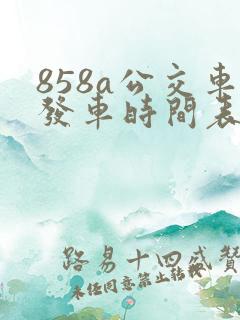 858a公交車
發車時間表
路易十四盛贊
未经同意禁止转载